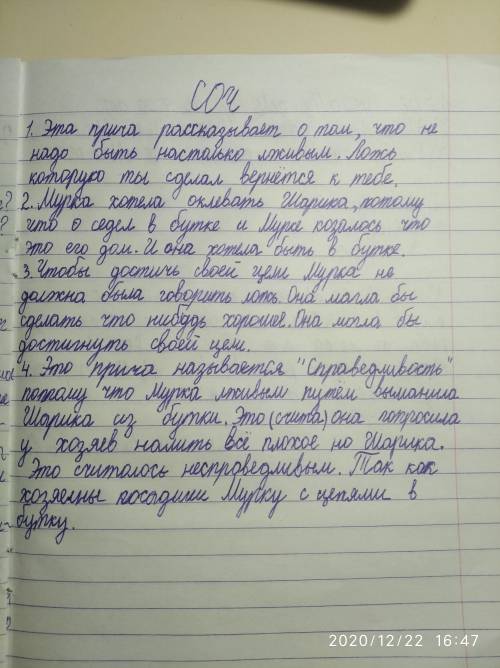 СОЧ
1. Эта прича рассказывает о том, что не
надо быть настолько лживым. Ложь
которую ты сделал вернётся к тебе.
2. Мурка хотела оклевать Шарика, потому
что о седел в бутке и Мурке козалось что
это его дом. И она хотела быть в бутке.
3. Чтобы достичь своей цели Мурка не
должна была говорить лож. Она могла бы
сделать что нибудь хорошее. Она могла бы
достигнуть своей цели.
4. Это прича называется "Справедливость"
потому что Мурка лживым путём выманила
Шарика из бутки. Это (счита) она попросила
у хозяев налить всё плохое но Шарика.
Это считалось несправедливым. Так как
хозяены посадили Мурку с цепями в
бутку.
2020/12/22 16:47